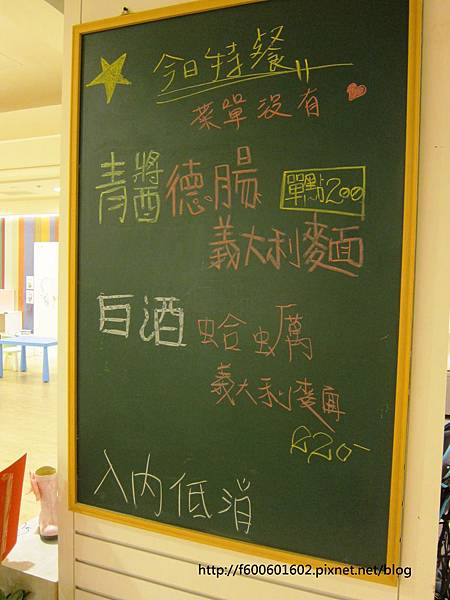 今日特餐
菜單沒有
青醬德腸 單點200
義大利麵
白酒蛤蠣
義大利麵
220-
入內低消
http://f600601602.pixnet.net/blog